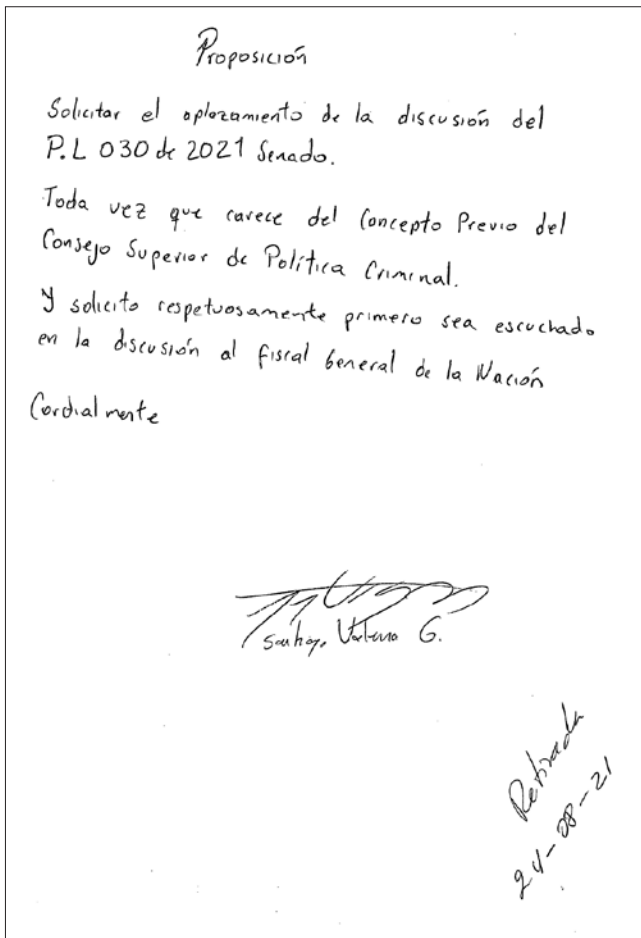 Proposición
Solicitar el aplazamiento de la discusión del
P.L 030 de 2021 Senado.
Toda vez que carece del Concepto Previo del
Consejo Superior de Política Criminal.
Y solicito respetuosamente primero sea escuchado
en la discusión al fiscal General de la Nación
Cordialmente
Santiago Valencia G.
Retirada
24-08-21